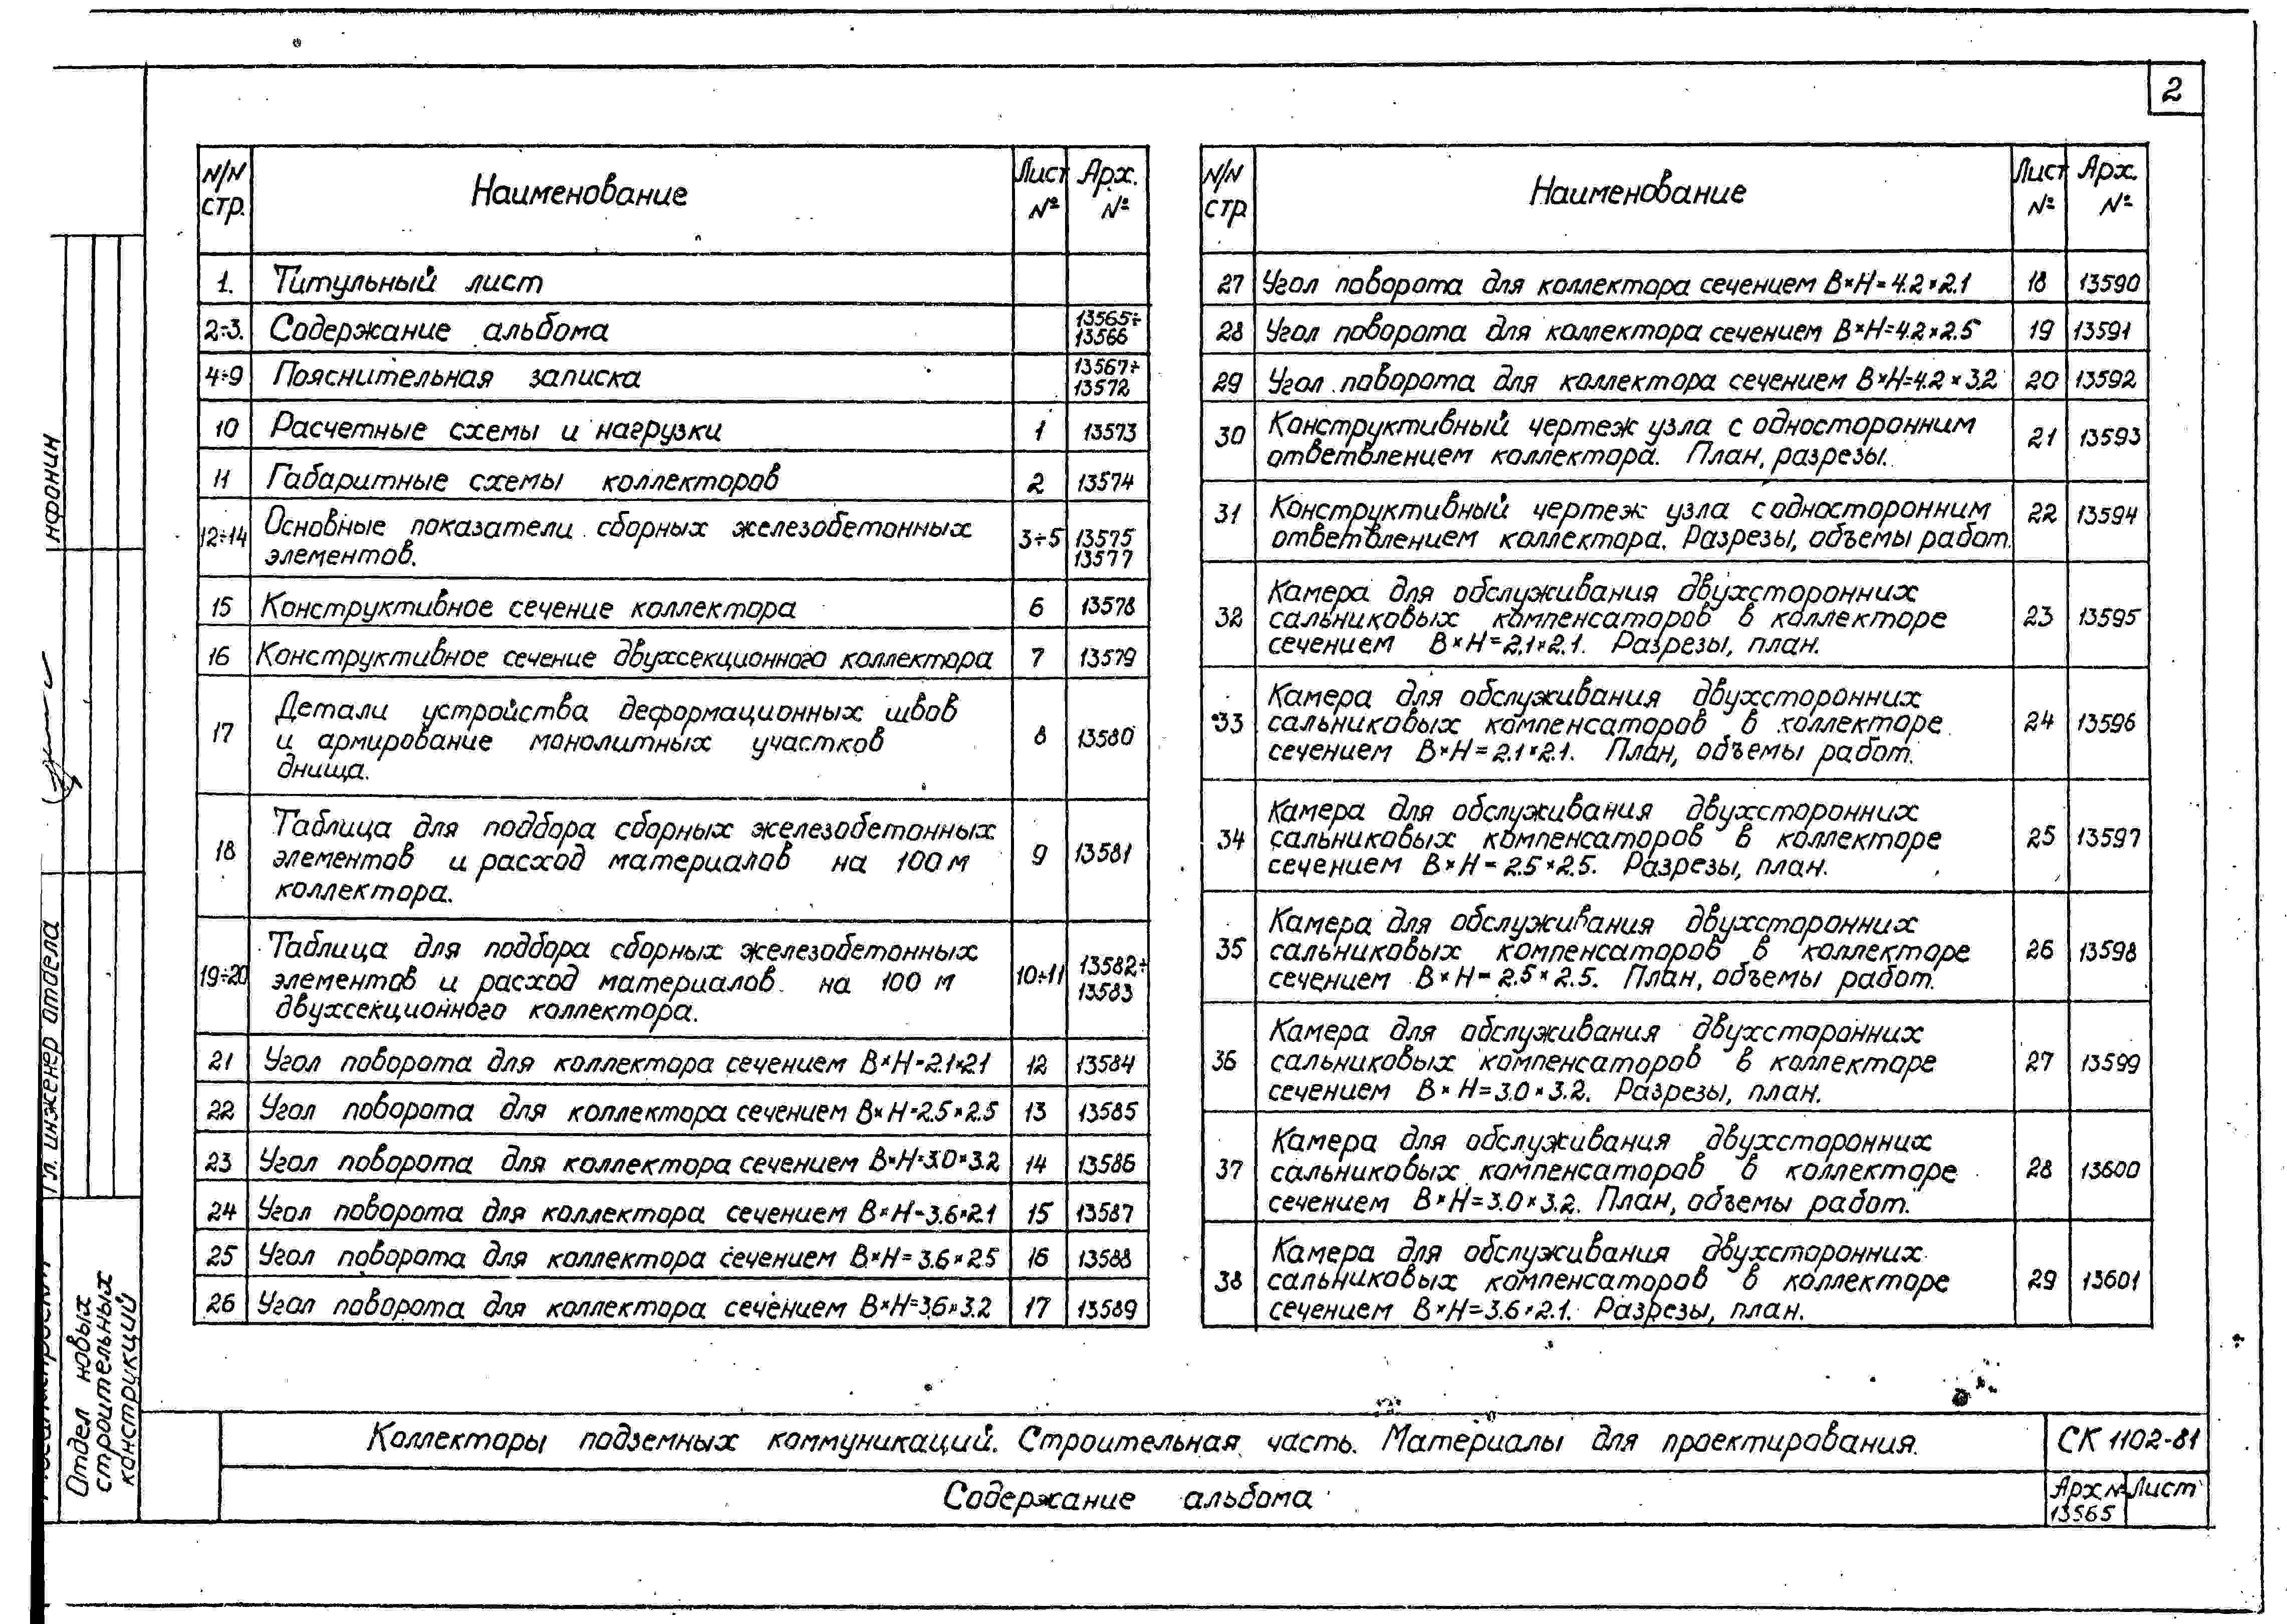 2
N/N стр. Наименование Лист № Арх. №
1. Титульный лист
2÷3. Содержание альбома 13565÷ 13566
4÷9 Пояснительная записка 13567÷ 13572
10 Расчетные схемы и нагрузки 1 13573
11 Габаритные схемы коллекторов 2 13574
12÷14 Основные показатели сборных железобетонных
элементов. 3÷5 13575 13577
15 Конструктивное сечение коллектора 6 13578
16 Конструктивное сечение двухсекционного коллектора 7 13579
17 Детали устройства деформационных швов
и армирование монолитных участков
днища. 8 13580
18 Таблица для подбора сборных железобетонных
элементов и расход материалов на 100 м
коллектора. 9 13581
19÷20 Таблица для подбора сборных железобетонных
элементов и расход материалов на 100 м
двухсекционного коллектора. 10÷11 13582÷ 13583
21 Угол поворота для коллектора сечением В×Н=2.1×2.1 12 13584
22 Угол поворота для коллектора сечением В×Н=2.5×2.5 13 13585
23 Угол поворота для коллектора сечением В×Н=3.0×3.2 14 13586
24 Угол поворота для коллектора сечением В×Н=3.6×2.1 15 13587
25 Угол поворота для коллектора сечением В×Н=3.6×2.5 16 13588
26 Угол поворота для коллектора сечением В×Н=3.6×3.2 17 13589
N/N стр Наименование Лист № Арх. №
27 Угол поворота для коллектора сечением В×Н=4.2×2.1 18 13590
28 Угол поворота для коллектора сечением В×Н=4.2×2.5 19 13591
29 Угол поворота для коллектора сечением В×Н=4.2×3.2 20 13592
30 Конструктивный чертеж узла с односторонним
ответвлением коллектора. План, разрезы. 21 13593
31 Конструктивный чертеж узла с односторонним
ответвлением коллектора. Разрезы, объемы работ. 22 13594
32 Камера для обслуживания двухсторонних
сальниковых компенсаторов в коллекторе
сечением В×Н=2.1×2.1. Разрезы, план. 23 13595
33 Камера для обслуживания двухсторонних
сальниковых компенсаторов в коллекторе
сечением В×Н=2.1×2.1. План, объемы работ. 24 13596
34 Камера для обслуживания двухсторонних
сальниковых компенсаторов в коллекторе
сечением В×Н=2.5×2.5. Разрезы, план. 25 13597
35 Камера для обслуживания двухсторонних
сальниковых компенсаторов в коллекторе
сечением В×Н=2.5×2.5. План, объемы работ. 26 13598
36 Камера для обслуживания двухсторонних
сальниковых компенсаторов в коллекторе
сечением В×Н=3.0×3.2. Разрезы, план. 27 13599
37 Камера для обслуживания двухсторонних
сальниковых компенсаторов в коллекторе
сечением В×Н=3.0×3.2. План, объемы работ. 28 13600
38 Камера для обслуживания двухсторонних
сальниковых компенсаторов в коллекторе
сечением В×Н=3.6×2.1. Разрезы, план. 29 13601
Гл. инженер отдела
Отдел новых
строительных
конструкций
Коллекторы подземных коммуникаций. Строительная часть. Материалы для проектирования. СК 1102-81
Содержание альбома Арх № 13565 Лист